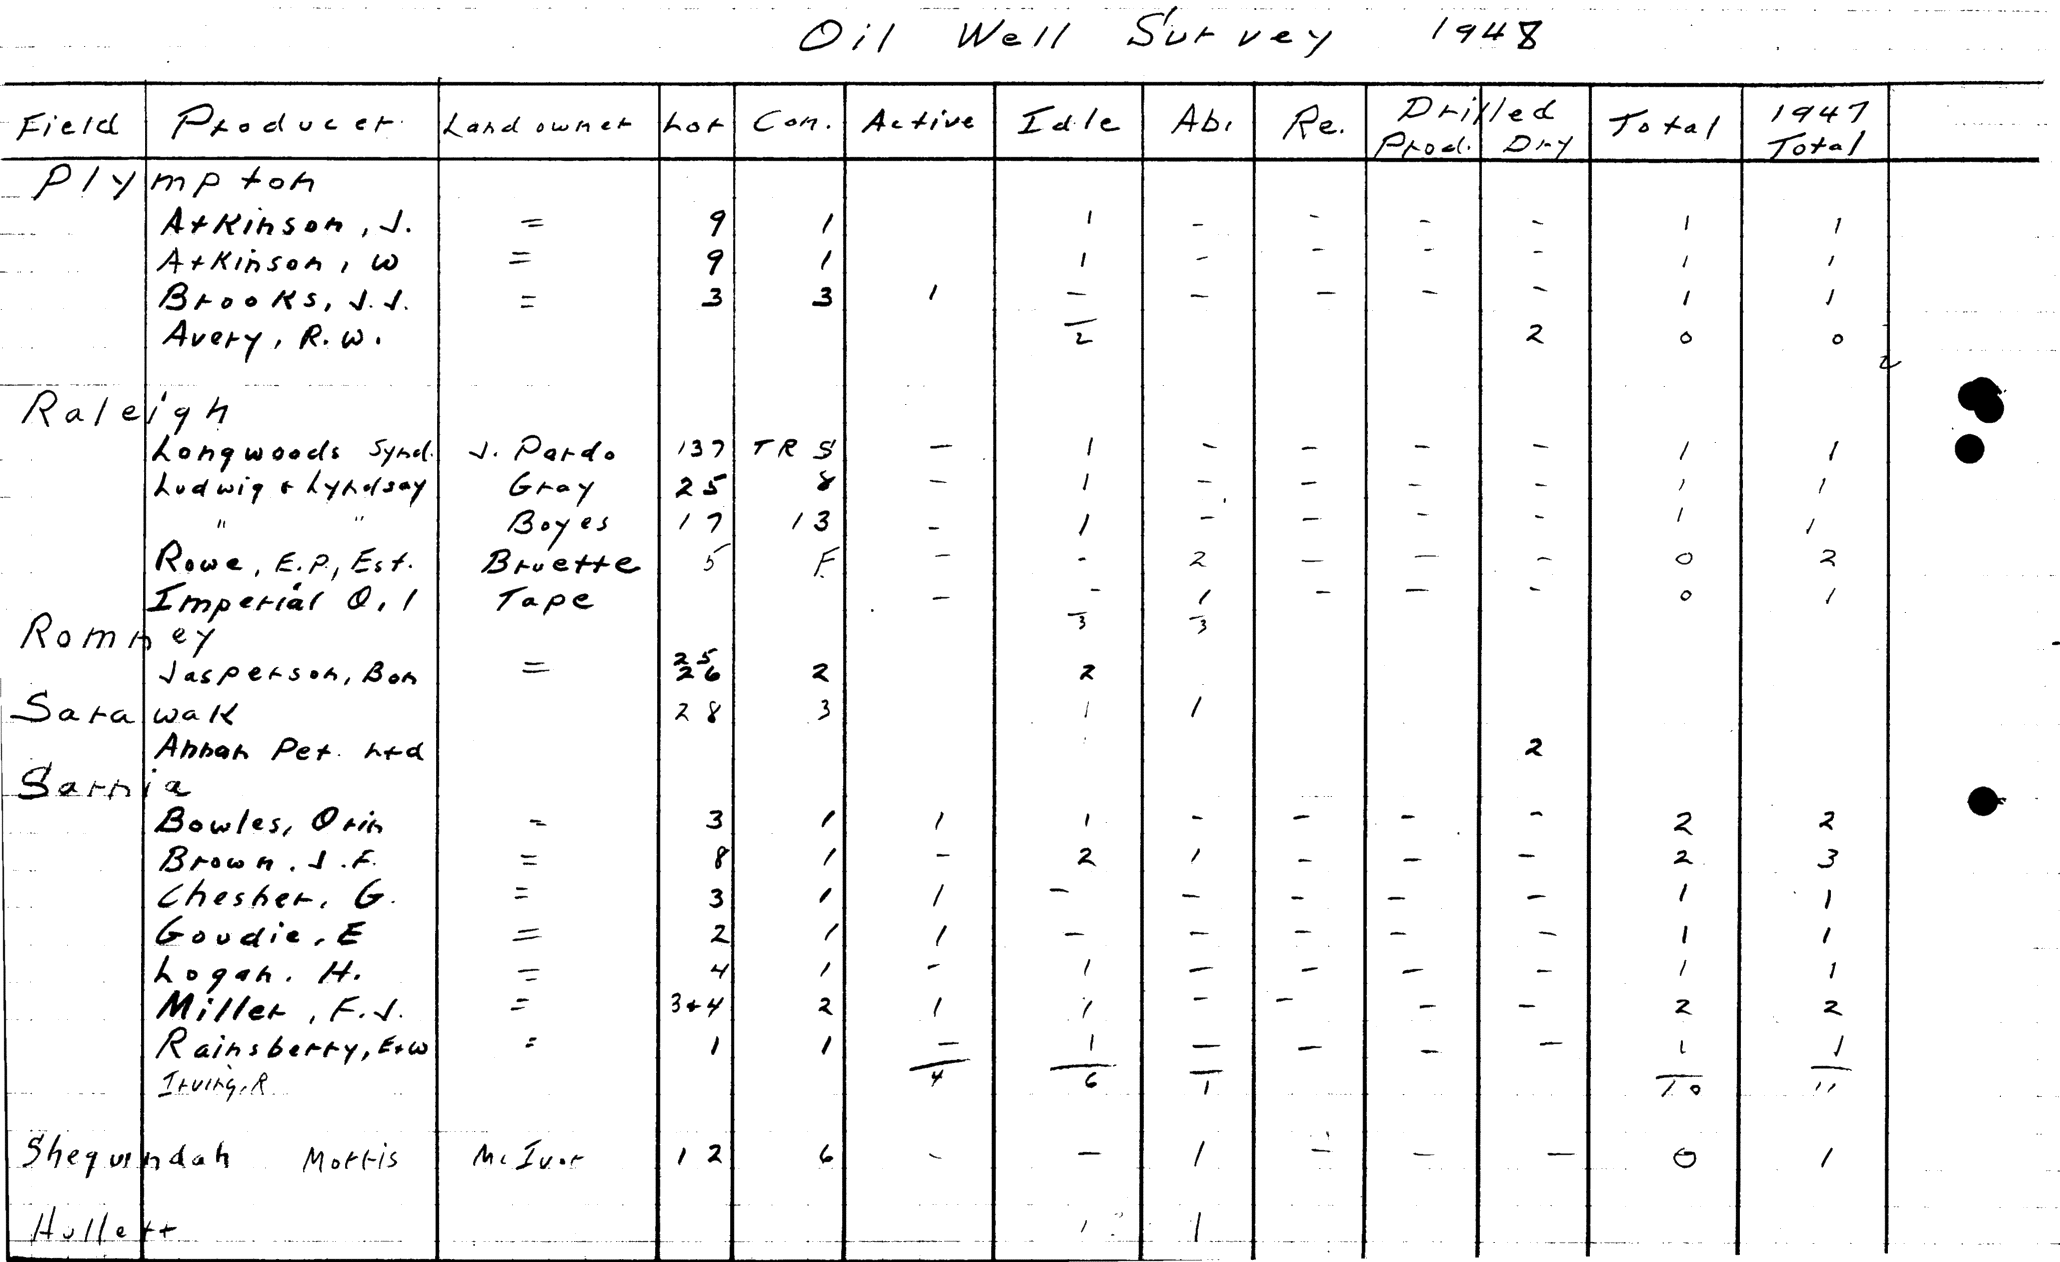 Oil Well Survey 1948
Field Producer. Landowner Lot Con. Active Idle Ab. Re. Drilled Prod. Dry Total 1947 Total
Plympton
Atkinson, J. = 9 1 1 - - - - 1 1
Atkinson, W = 9 1 1 - - - - 1 1
Brooks, J.J. = 3 3 1 - - - - - 1 1
Avery, R.W. 2 2 0 0
2
Raleigh
Longwoods Synd. J. Pardo 137 TR S - 1 - - - - 1 1
Ludwig + Lyndsay Gray 25 8 - 1 - - - - 1 1
" " Boyes 17 13 - 1 - - - - 1 1
Rowe, E.P., Est. Bruette 5 F. - - 2 - - - 0 2
Imperial O.l Tape - - 1 - - - 0 1
3 3
Romney
25
Jasperson, Bon = 26 2 2
Sarawak 28 3 1 1
Annan Pet. Ltd 2
Sarnia
Bowles, Orin = 3 1 1 1 - - - - 2 2
Brown. J.F. = 8 1 - 2 1 - - - 2 3
Chesher, G. = 3 1 1 - - - - - 1 1
Goudie, E = 2 1 1 - - - - - 1 1
Logan. H. = 4 1 - 1 - - - - 1 1
Miller, F.J. = 3+4 2 1 1 - - - - 2 2
Rainsberry, E+W = 1 1 - 1 - - - - 1 1
Irving, R 4 6 1 10 11
Sheguindah Morris McIvor 12 6 - - 1 - - - 0 1
Hullett 1 1